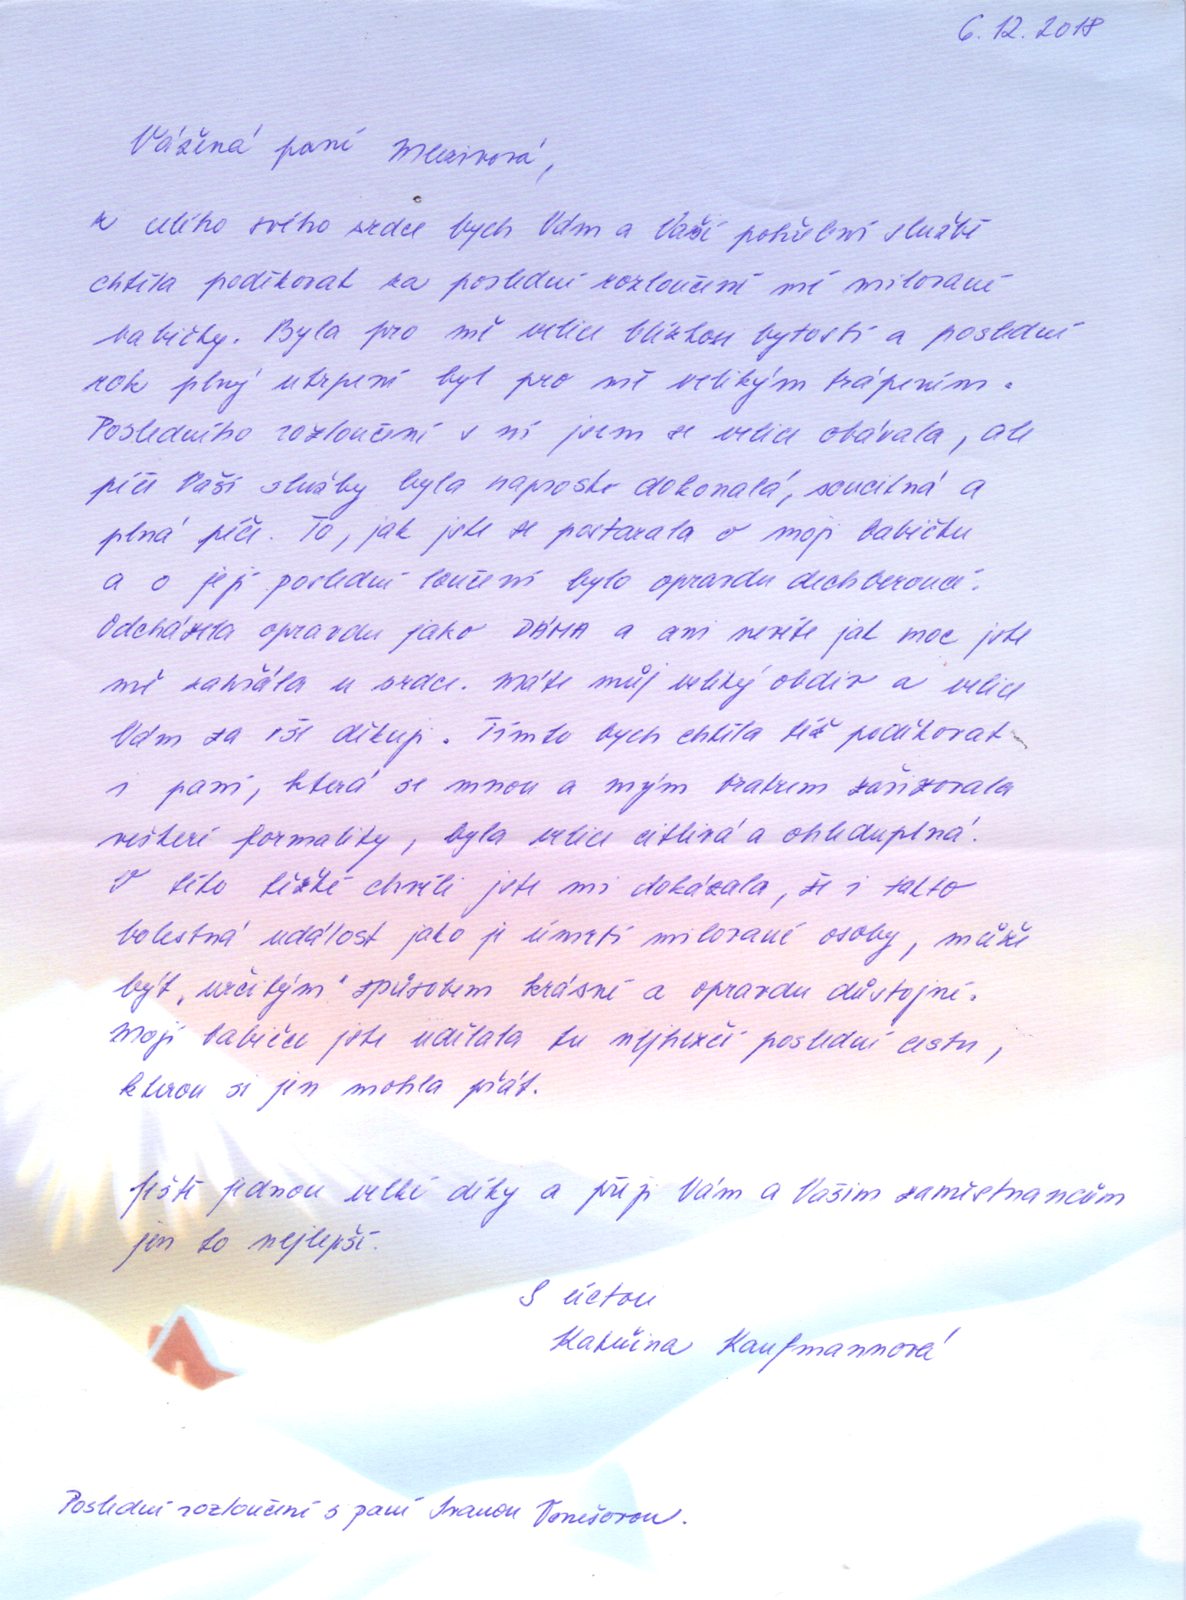 6. 12. 2018
Vážená paní
z celého svého srdce bych Vám a Vaší pohřební službě
chtěla poděkovat za poslední rozloučení mé milované
babičky. Byla pro mě velice blízkou bytostí a poslední
rok plný utrpení byl pro mě velikým trápením.
Posledního rozloučení s ní jsem se velice obávala, ale
péče Vaší služby byla naprosto dokonalá, soucitná a
plná péče. To, jak jste se postarala o moji babičku
a o její poslední loučení bylo opravdu dechberoucí.
Odcházela opravdu jako DÁMA a ani nevíte jak moc jste
mě zahřála u srdce. Máte můj veliký obdiv a velice
Vám za vše děkuji. Tímto bych chtěla též poděkovat
i paní, která se mnou a mým bratrem zařizovala
veškeré formality, byla velice citlivá a ohleduplná.
V této těžké chvíli jste mi dokázala, že i takto
bolestná událost jako je úmrtí milované osoby, může
být „určitým" způsobem krásné a opravdu důstojné.
Mojí babičce jste udělala tu nejhezčí poslední cestu,
kterou si jen mohla přát.
Ještě jednou velké díky a přeji Vám a Vašim zaměstnancům
jen to nejlepší.
S úctou
Kateřina Kaufmannová
Poslední rozloučení s paní Ivanou